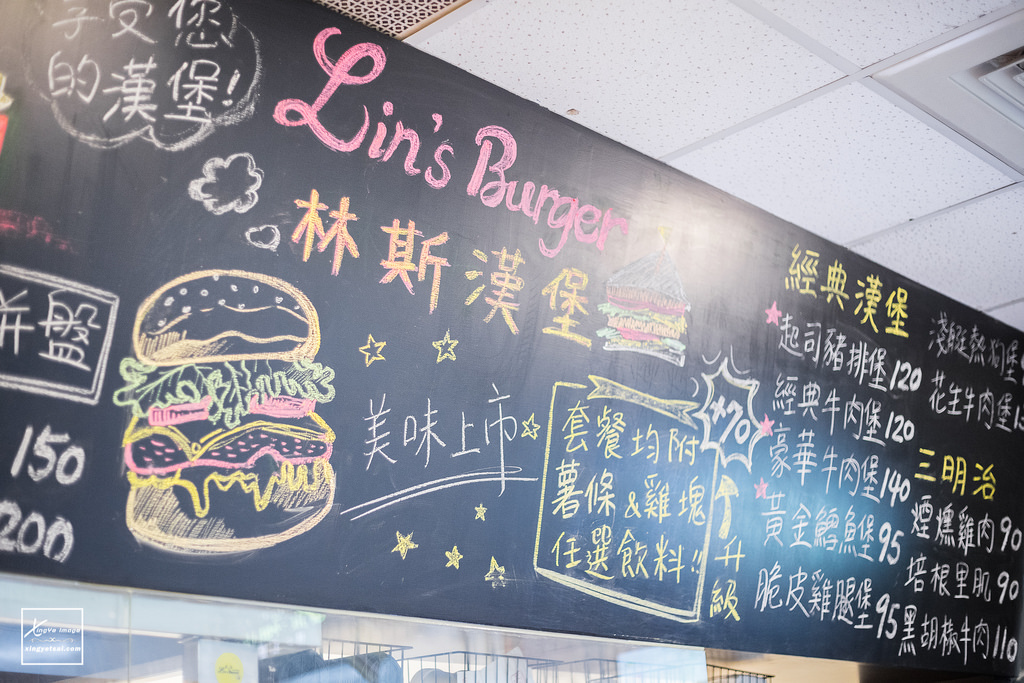 享受您
的漢堡!
Lin's Burger
林斯漢堡
美味上市
拼盤
150
200
套餐均附
薯條&雞塊
任選飲料!!
+70
升級
經典漢堡
起司豬排堡120
經典牛肉堡120
豪華牛肉堡140
黃金鱈魚堡95
脆皮雞腿堡95
淺艇熱狗堡
花生牛肉堡
三明治
煙燻雞肉90
培根里肌90
黑胡椒牛肉110
Xingye image
xingyetsai.com